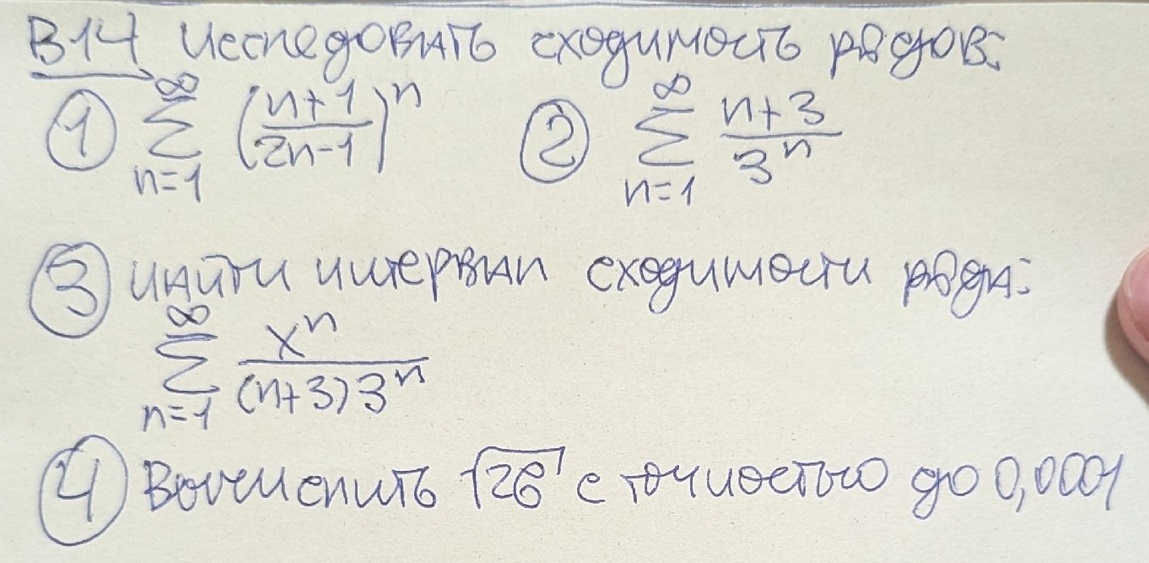 В14 Исследовать сходимость рядов:
① $\sum_{n=1}^{\infty} \left(\frac{n+1}{2n-1}\right)^n$ ② $\sum_{n=1}^{\infty} \frac{n+3}{3^n}$
③ Найти интервал сходимости ряда:
$\sum_{n=1}^{\infty} \frac{x^n}{(n+3)3^n}$
④ Вычислить $\sqrt{26}$ с точностью до 0,0001